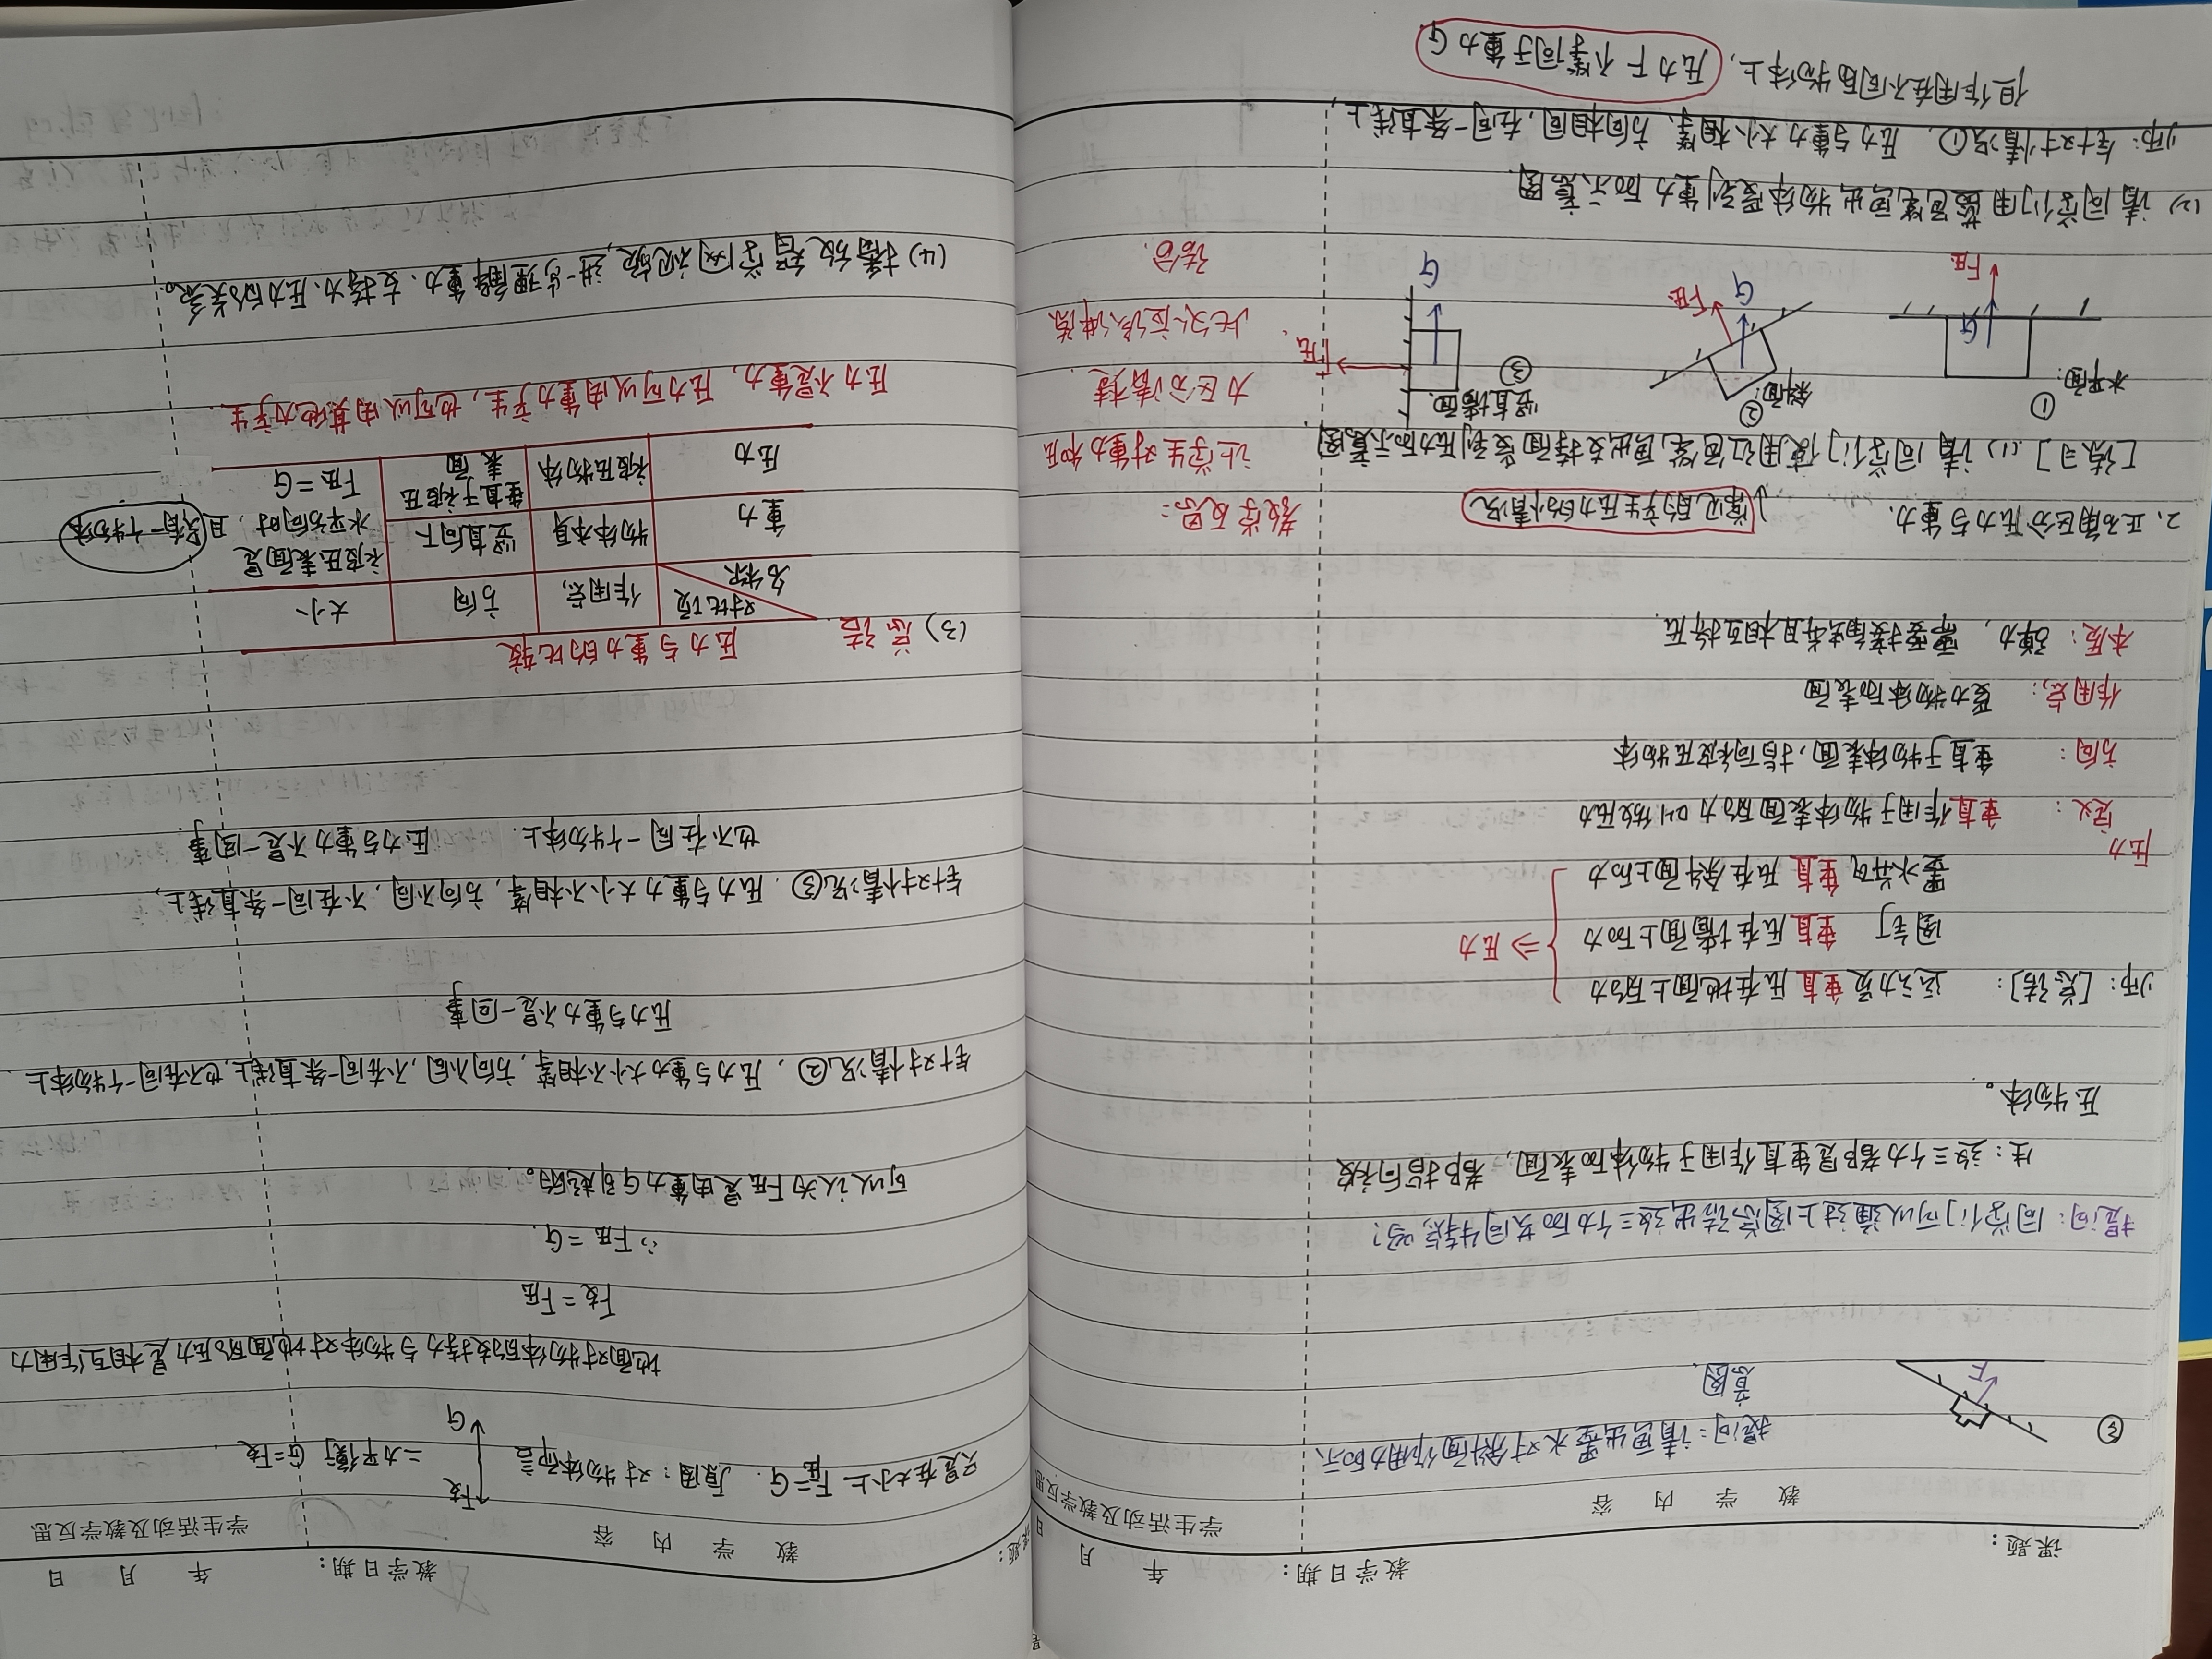 课题： 教学日期： 年 月 日
教 学 内 容 学生活动及教学反思
③ 提问：请画出墨水对斜面作用力的示
意图
F
提问：同学们可以通过上图总结出这三个力的共同特点吗？
生：这三个力都是垂直作用于物体的表面，都指向被
压物体。
师：[总结]： 运动员垂直压在地面上的力
图钉 垂直压在墙面上的力
墨水并可垂直压在斜面上的力
⇒压力
压力
定义： 垂直作用于物体表面的力叫做压力
方向： 垂直于物体表面，指向被压物体
作用点： 受力物体的表面
本质： 弹力，需要接触并且相互挤压
2、正确区分压力与重力. 常见的产生压力的小情况 教学反思：
[练习].(1) 请同学们使用红色笔画出支持面受到压力的示意图. 让学生对重力和压
力区分清楚
此处应该讲练
结合.
水平面： ① G F压
斜面： ② G F压
竖直墙面 ③ G F压
(2) 请同学们用蓝色笔画出物体受到重力的示意图.
师：针对情况①，压力与重力大小相等，方向相同，在同一条直线上，
但作用在不同的物体上，压力F不等同于重力G
课题： 教学日期： 年 月 日
教 学 内 容 学生活动及教学反思
只是在大小上F压=G. 原因：对物体而言 F支 G 二力平衡 G=F支，
地面对物体的支持力与物体对地面的压力是相互作用力
F支=F压
∴F压=G.
可以认为F压是由重力G引起的。
针对情况②，压力与重力大小不相等，方向不同，不在同一条直线上，也不在同一个物体上.
压力与重力不是一回事
针对情况③. 压力与重力大小不相等，方向不同，不在同一条直线上，
也不在同一个物体上. 压力与重力不是一回事.
(3) 总结. 压力与重力的比较
对比项 名称 作用点 方向 大小
重力 物体本身 竖直向下 被压表面是
水平方向时，且只有一个物体
压力 被压物体 垂直于被压
表面 F压=G
压力不是重力，压力可以由重力产生，也可以由其他力产生.
(4) 播放智学网视频，进一步理解重力、支持力、压力的关系。